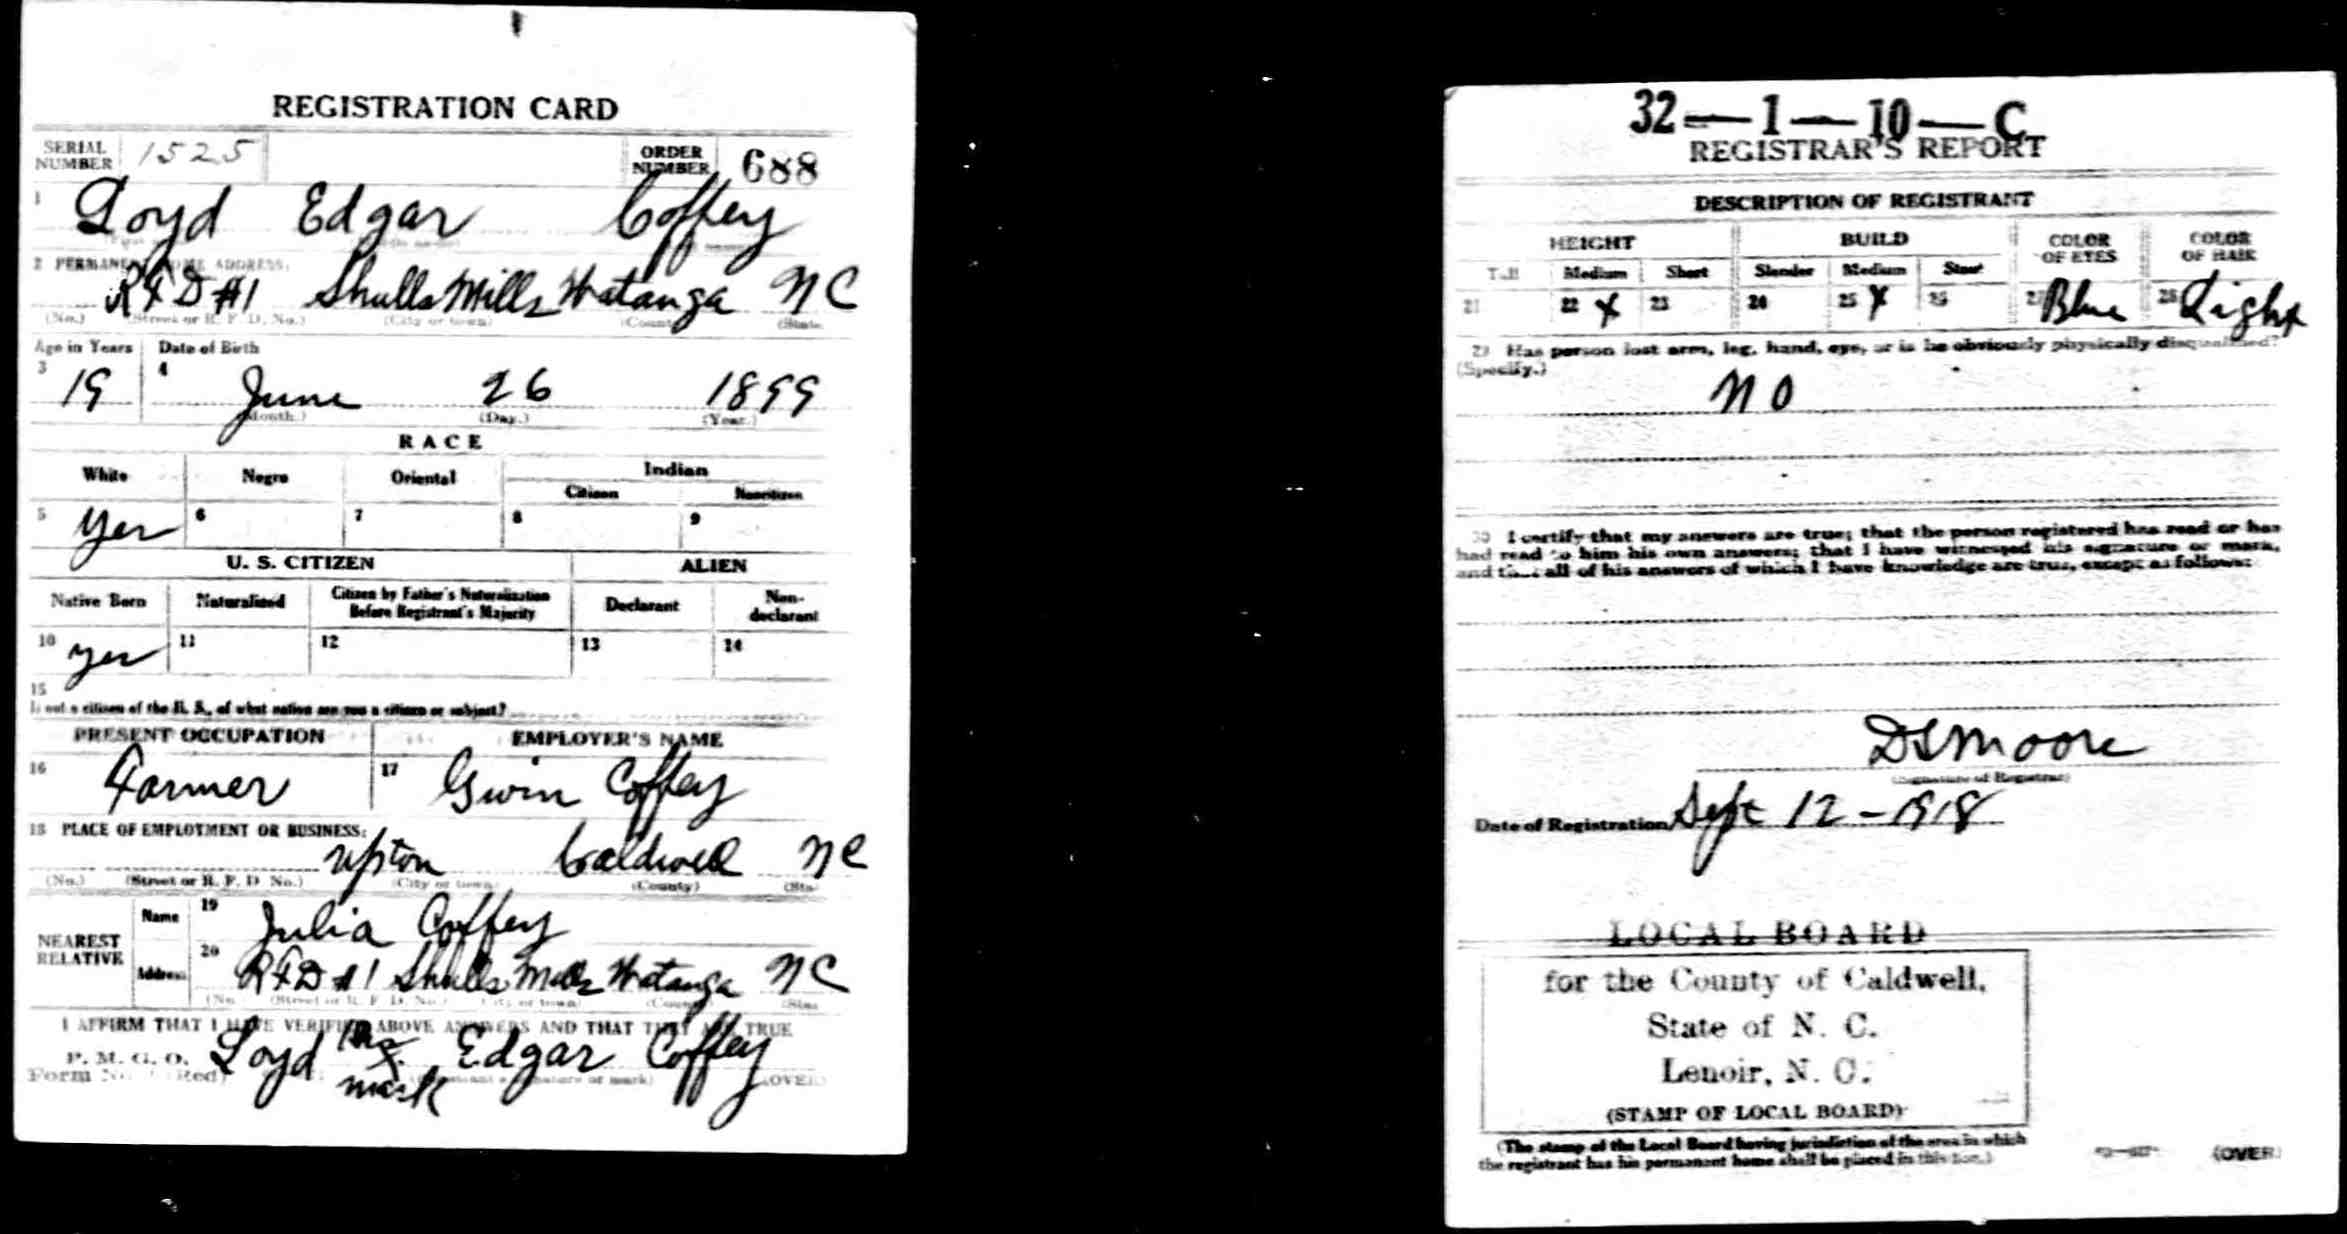 REGISTRATION CARD
SERIAL NUMBER 1525 ORDER NUMBER 688
1 Loyd Edgar Coffey
2 PERMANENT HOME ADDRESS:
RFD #1 Shulls Mills Watanga NC
(No.) (Street or R. F. D. No.) (City or town) (County) (State
Age in Years Date of Birth
3 19 4 June 26 1899
(Month.) (Day.) (Year.)
RACE
White Negro Oriental Indian
Citizen Noncitizen
5 Yes 6 7 8 9
U. S. CITIZEN ALIEN
Native Born Naturalized Citizen by Father's Naturalization Before Registrant's Majority Declarant Non-declarant
10 Yes 11 12 13 14
15
If not a citizen of the U. S., of what nation are you a citizen or subject?
PRESENT OCCUPATION EMPLOYER'S NAME
16 Farmer 17 Gwin Coffey
18 PLACE OF EMPLOYMENT OR BUSINESS:
Upton Caldwell NC
(No.) (Street or R. F. D. No.) (City or town) (County) (Sta
NEAREST RELATIVE Name 19 Julia Coffey
Address 20 RFD #1 Shulls Mills Watanga NC
(No. (Street or R. F. D. No.) (City or town) (County) (State
I AFFIRM THAT I HAVE VERIFIED ABOVE ANSWERS AND THAT THEY ARE TRUE
P. M. G. O.
Form No. (Red) Loyd his X mark Edgar Coffey
(OVER)
32—1—10—C
REGISTRAR'S REPORT
DESCRIPTION OF REGISTRANT
HEIGHT BUILD COLOR OF EYES COLOR OF HAIR
Tall Medium Short Slender Medium Stout
21 22 X 23 24 25 X 26 27 Blue 28 Light
29 Has person lost arm, leg, hand, eye, or is he obviously physically disqualified?
(Specify.)
NO
30 I certify that my answers are true; that the person registered has read or has
had read to him his own answers; that I have witnessed his signature or mark,
and that all of his answers of which I have knowledge are true, except as follows:
DSMoore
(Signature of Registrar)
Date of Registration Sept 12-1918
LOCAL BOARD
for the County of Caldwell,
State of N. C.
Lenoir, N. C.
(STAMP OF LOCAL BOARD)
(The stamp of the Local Board having jurisdiction of the area in which
the registrant has his permanent home shall be placed in this box.)
(OVER)